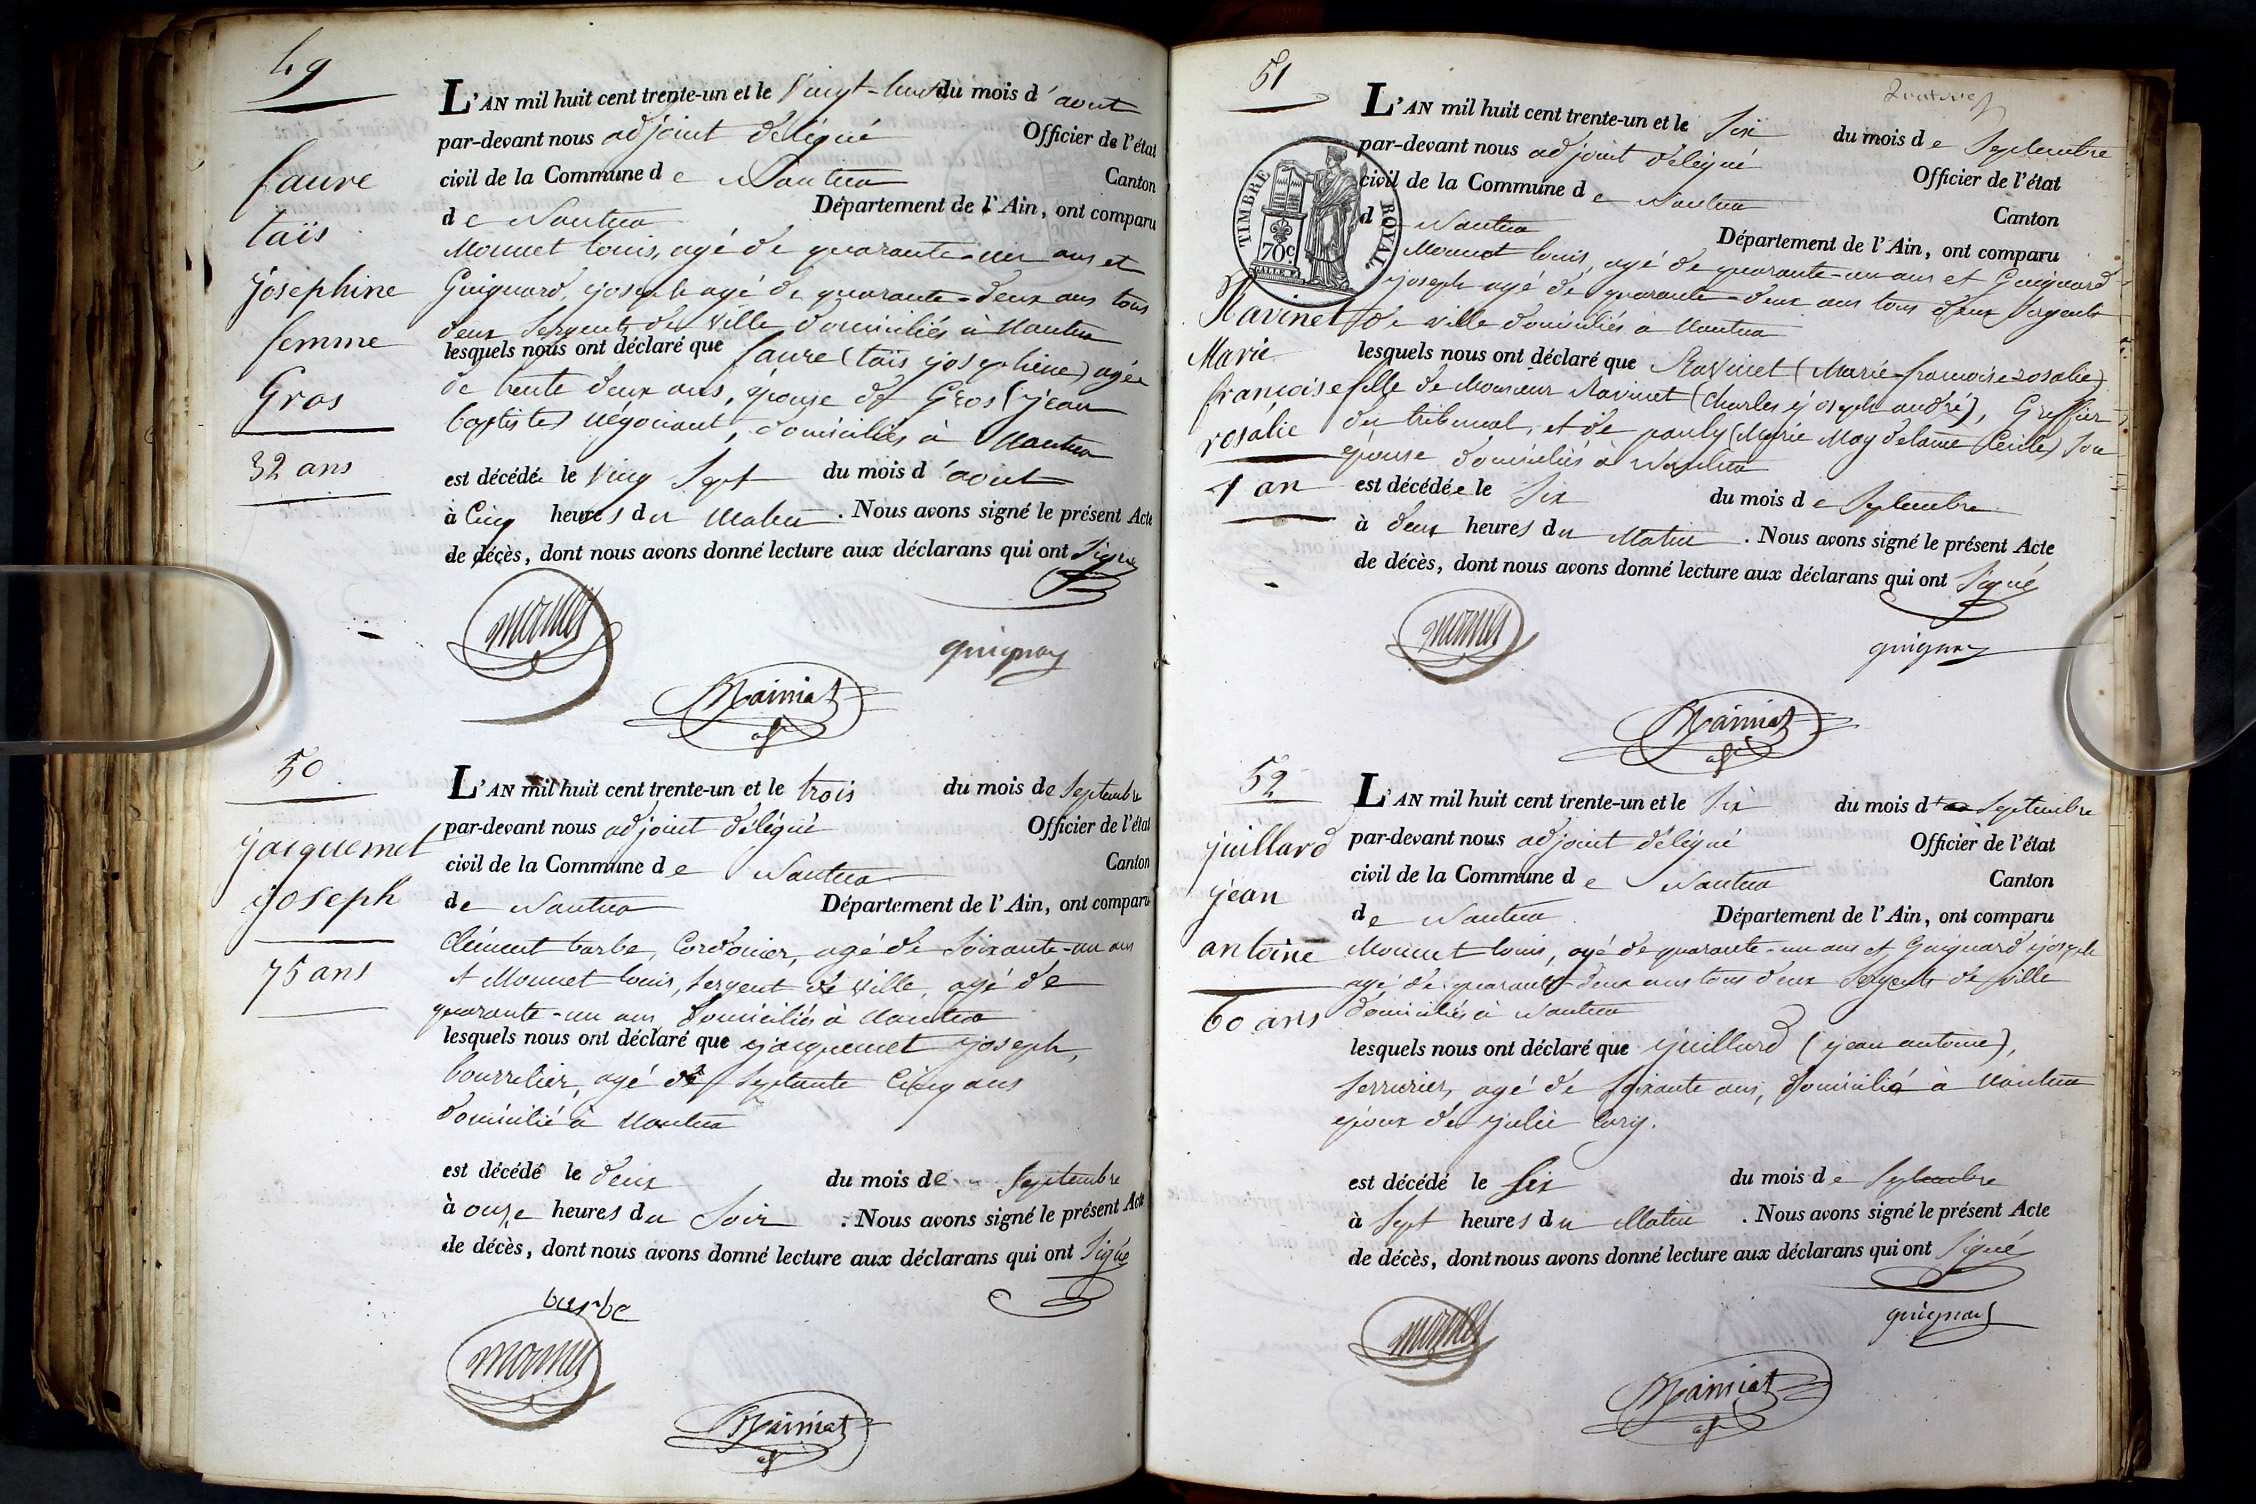 49
faure
taïs
josephine
femme
Gros
32 ans
L'AN mil huit cent trente-un et le Vingt-huit du mois d'aout
par-devant nous adjoint délégué Officier de l'état
civil de la Commune de Nantua Canton
de Nantua Département de l'Ain, ont comparu
Monnet louis, agé de quarante-un ans et
Guignard, joseph agé de quarante-deux ans tous
deux Sergents de Ville domiciliés à Nantua
lesquels nous ont déclaré que faure (taïs josephine) agée
de trente deux ans, épouse de Gros (jean
baptiste) négociant, domiciliés à Nantua
est décédée le Ving Sept du mois d'aout
à Cinq heures du Matin. Nous avons signé le présent Acte
de décès, dont nous avons donné lecture aux déclarans qui ont Signé
monnet
guignard
50
jacquemet
joseph
75 ans
L'AN mil huit cent trente-un et le trois du mois de Septembre
par-devant nous adjoint délégué Officier de l'état
civil de la Commune de Nantua Canton
de Nantua Département de l'Ain, ont comparu
Clément barbe, Cordonier, agé de Soixante-un ans
et Monnet louis, Sergent de Ville, agé de
quarante-un ans, domiciliés à Nantua
lesquels nous ont déclaré que jacquemet joseph,
bourrelier, agé de Septante Cinq ans
domicilié à Nantua
est décédé le deux du mois de Septembre
à onze heures du Soir. Nous avons signé le présent Acte
de décès, dont nous avons donné lecture aux déclarans qui ont Signé
barbe
monnet
51
TIMBRE ROYAL.
70 c.
Ravinet
Marie
françoise
rosalie
1 an
L'AN mil huit cent trente-un et le Six du mois de Septembre
par-devant nous adjoint délégué Officier de l'état
civil de la Commune de Nantua Canton
d Nantua Département de l'Ain, ont comparu
Monnet louis, agé de quarante-un ans et Guignard
joseph agé de quarante-deux ans tous deux Sergents
de ville domiciliés à Nantua
lesquels nous ont déclaré que Ravinet (Marie-francoise-rosalie)
fille de Monsieur Ravinet (Charles joseph andré), Greffier
du tribunal, et de pauly (Marie Magdelaine Cécile) Son
épouse domiciliés à Nantua
est décédée le Six du mois de Septembre
à deux heures du Matin. Nous avons signé le présent Acte
de décès, dont nous avons donné lecture aux déclarans qui ont Signé
monnet
guignard
52
juillard
jean
antoine
60 ans
L'AN mil huit cent trente-un et le Six du mois de Septembre
par-devant nous adjoint délégué Officier de l'état
civil de la Commune de Nantua Canton
de Nantua Département de l'Ain, ont comparu
Monnet louis, agé de quarante-un ans et Guignard joseph
agé de quarante deux ans tous deux Sergents de Ville
domiciliés à Nantua
lesquels nous ont déclaré que juillard (jean antoine),
Serrurier, agé de Soixante ans, domicilié à Nantua
époux de julie
est décédé le Six du mois de Septembre
à Sept heures du Matin. Nous avons signé le présent Acte
de décès, dont nous avons donné lecture aux déclarans qui ont Signé
monnet
guignard